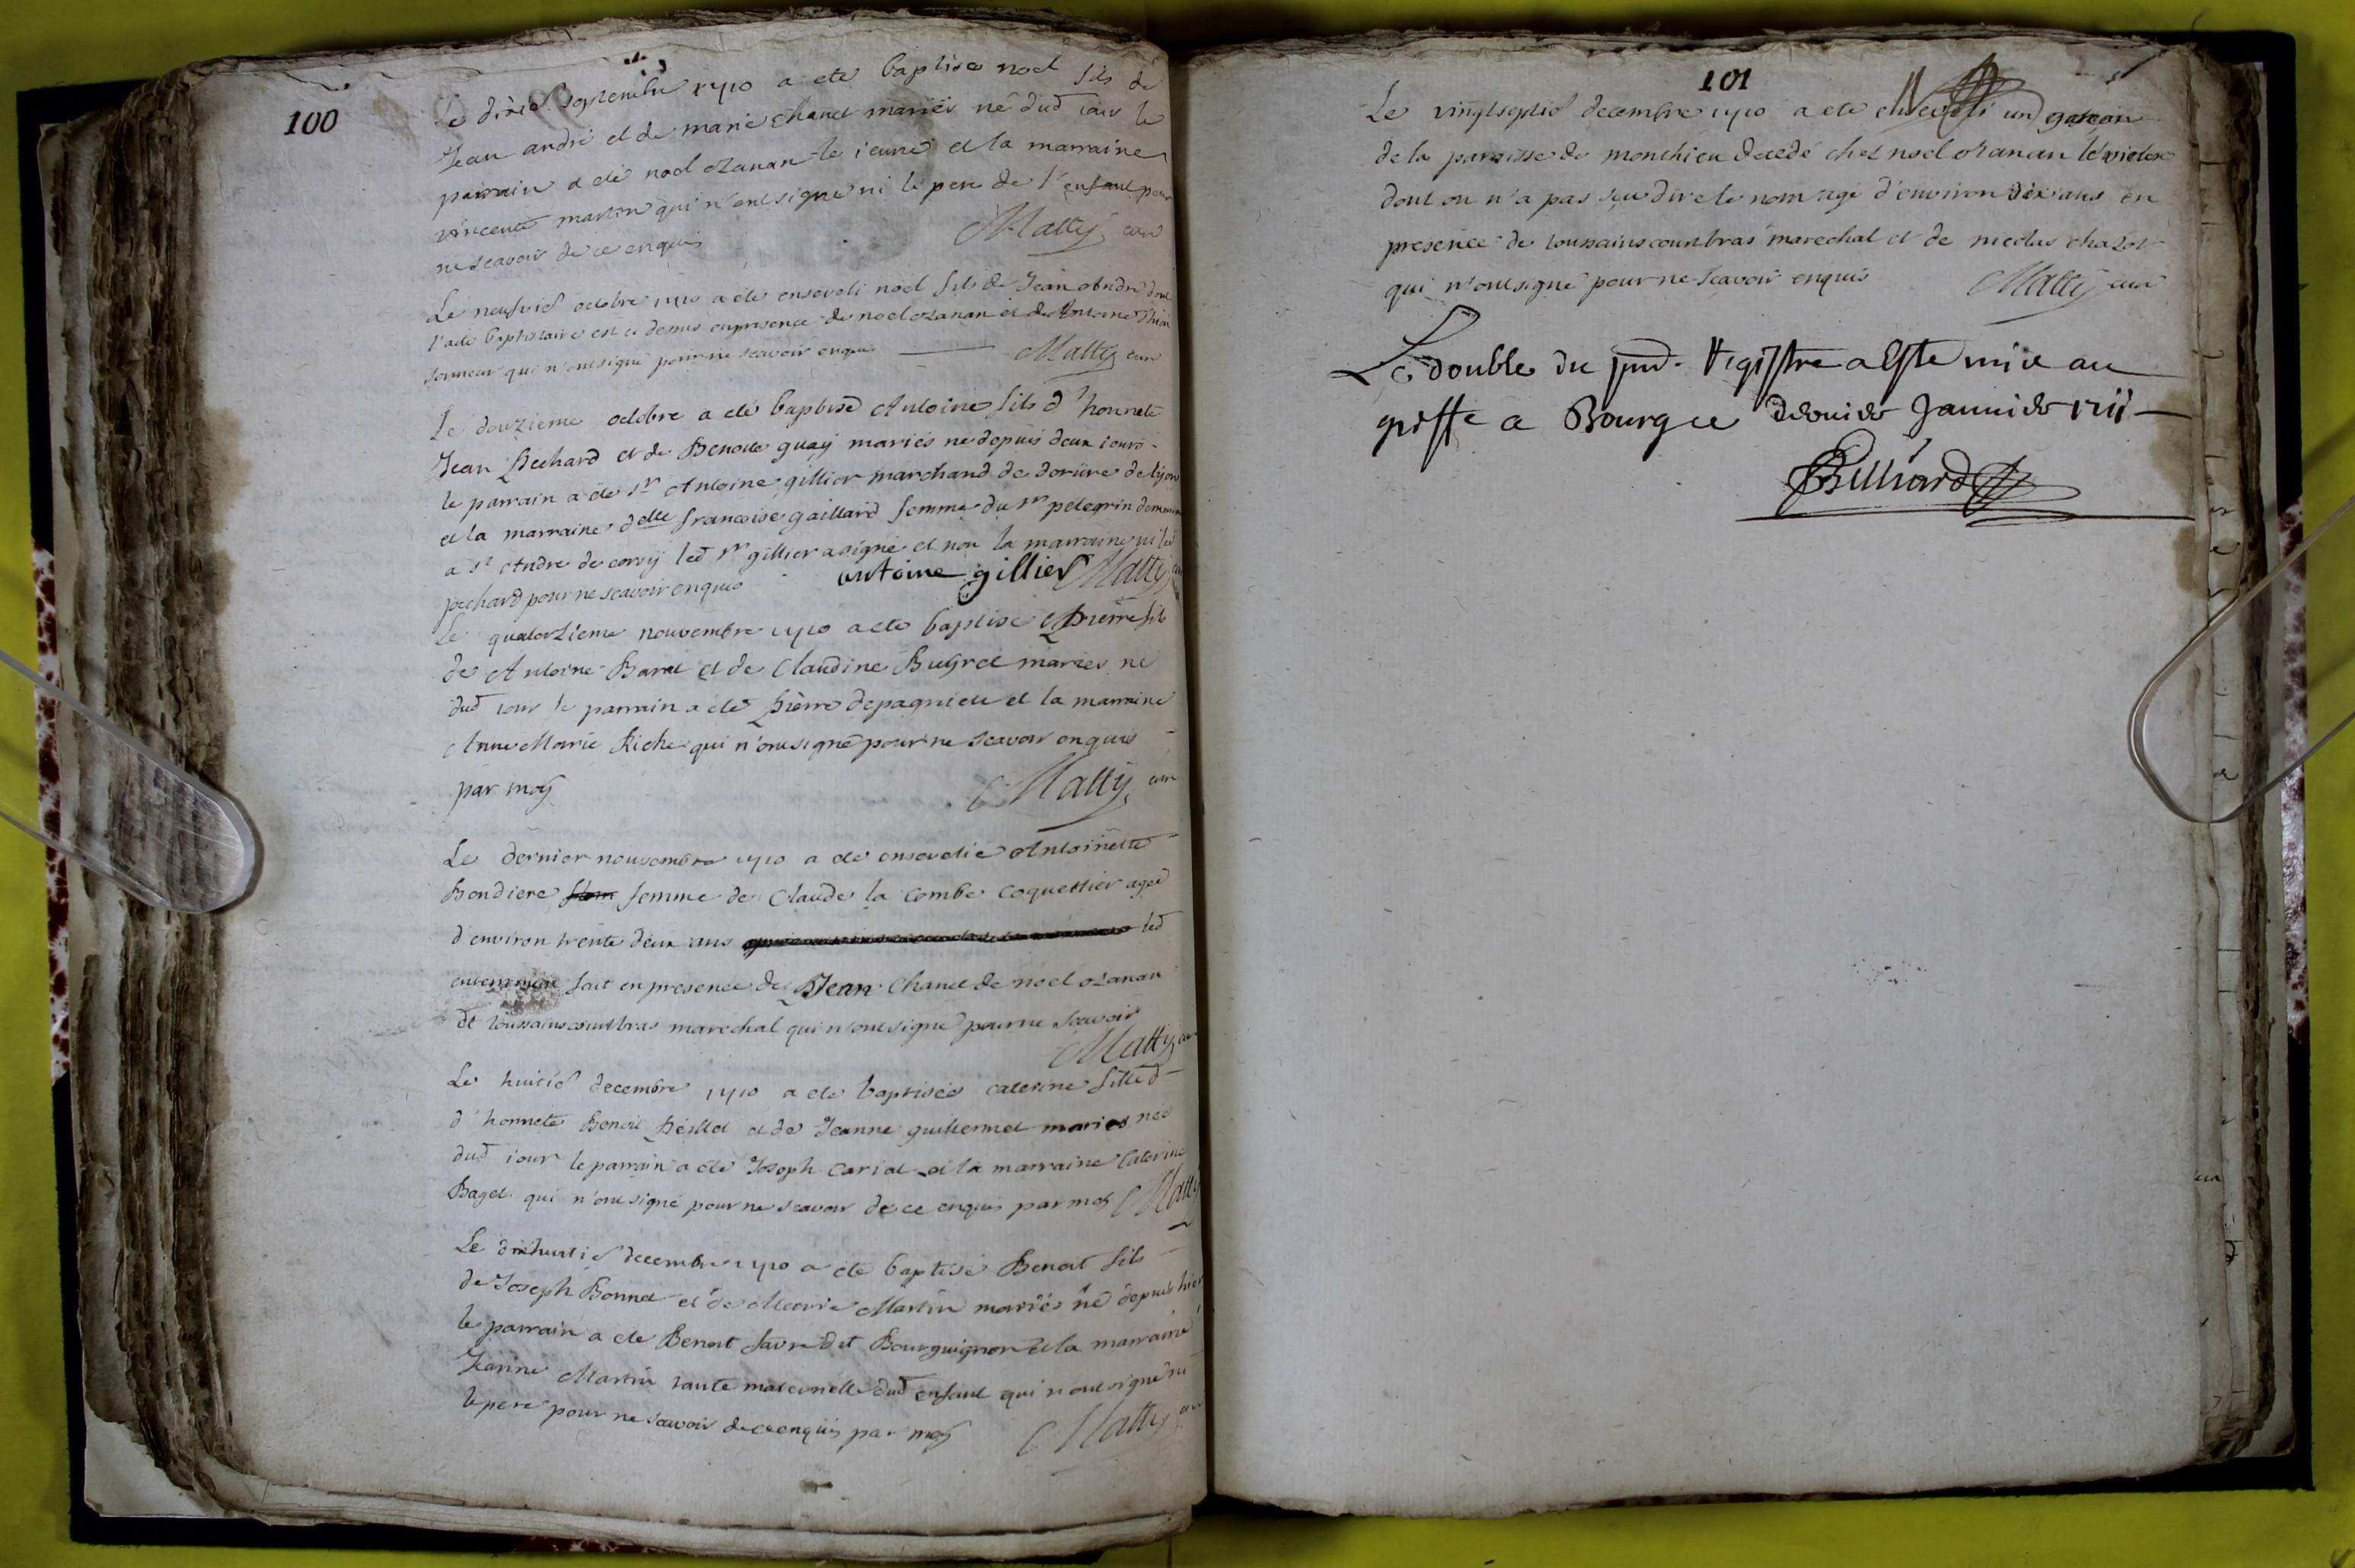 100
Le dixie septembre 1710 a ete baptise noel fils de
Jean andré et de marie Chanel mariés né dud iour le
parrain a ete noel ozanan le ieune et la marraine
vincente martin qui n'ont signe ni le pere de l'enfant pour
ne scavoir de ce enquis Matty cure
Le neufvie octobre 1710 a ete enseveli noel fils de Jean Andre dont
l'acte baptistaire est ci dessus en presence de noel ozanan et de Antoine
sonneur qui n'ont signé pour ne scavoir enquis Matty cure
Le douzieme octobre a eté baptisé Antoine fils d'honnete
Jean Pechard et de Benoite guaÿ mariés ne depuis deux iours
le parrain a ete sr Antoine gillier marchand de dorure de lyon
et la marraine delle francoise gaillard femme du sr pelegrin
a st Andre de corcy led sr gillier a signé et non la marraine ni led
pechard pour ne scavoir enquis antoine gillier Matty
Le quatorzieme nouvembre 1710 a ete baptisé Pierre fils
de Antoine Barat et de Claudine mariés né
dud iour le parrain a eté Pierre depagnieu et la marraine
Anne Marie Riche qui n'ont signé pour ne scavoir enquis
par moy Matty cure
Le dernier nouvembre 1710 a ete ensevelie Antoinette
Bondiere femme de Claude la Combe coquettier agee
d'environ trente deux ans led
enterrement fait en presence de Jean Chanel de noel ozanan
et toussains coustras marechal qui n'ont signé pour ne scavoir
Matty cure
Le huitie decembre 1710 a ete baptisée caterine fille d
d'honnete Benoit et de Jeanne guillermet mariés née
dud iour le parrain a eté Joseph Cariat et la marraine Caterine
Baget qui n'ont signé pour ne scavoir de ce enquis par moy Matty
Le dixhuitie decembre 1710 a eté baptisé Benoit fils
de Joseph Bonnet et de Marie Martin mariés né depuis hier
le parrain a ete Benoit favre dit Bourguignon et la marraine
Jeanne Martin tante maternelle dud enfant qui n'ont signé ni
le pere pour ne scavoir de ce enquis par moy Matty cure
101
Le vingtseptie decembre 1710 a ete enseveli un garcon
de la paroisse de monthieu decedé chez noel ozanan le vieux
dont on n'a pas sceu dire le nom agé d'environ dix ans en
presence de toussains coustras marechal et de nicolas chazot
qui n'ont signé pour ne scavoir enquis Matty cure
Le double du pnt Registre a Este mis au
greffe a Bourg ce dernier Janvier 1711
Billiard